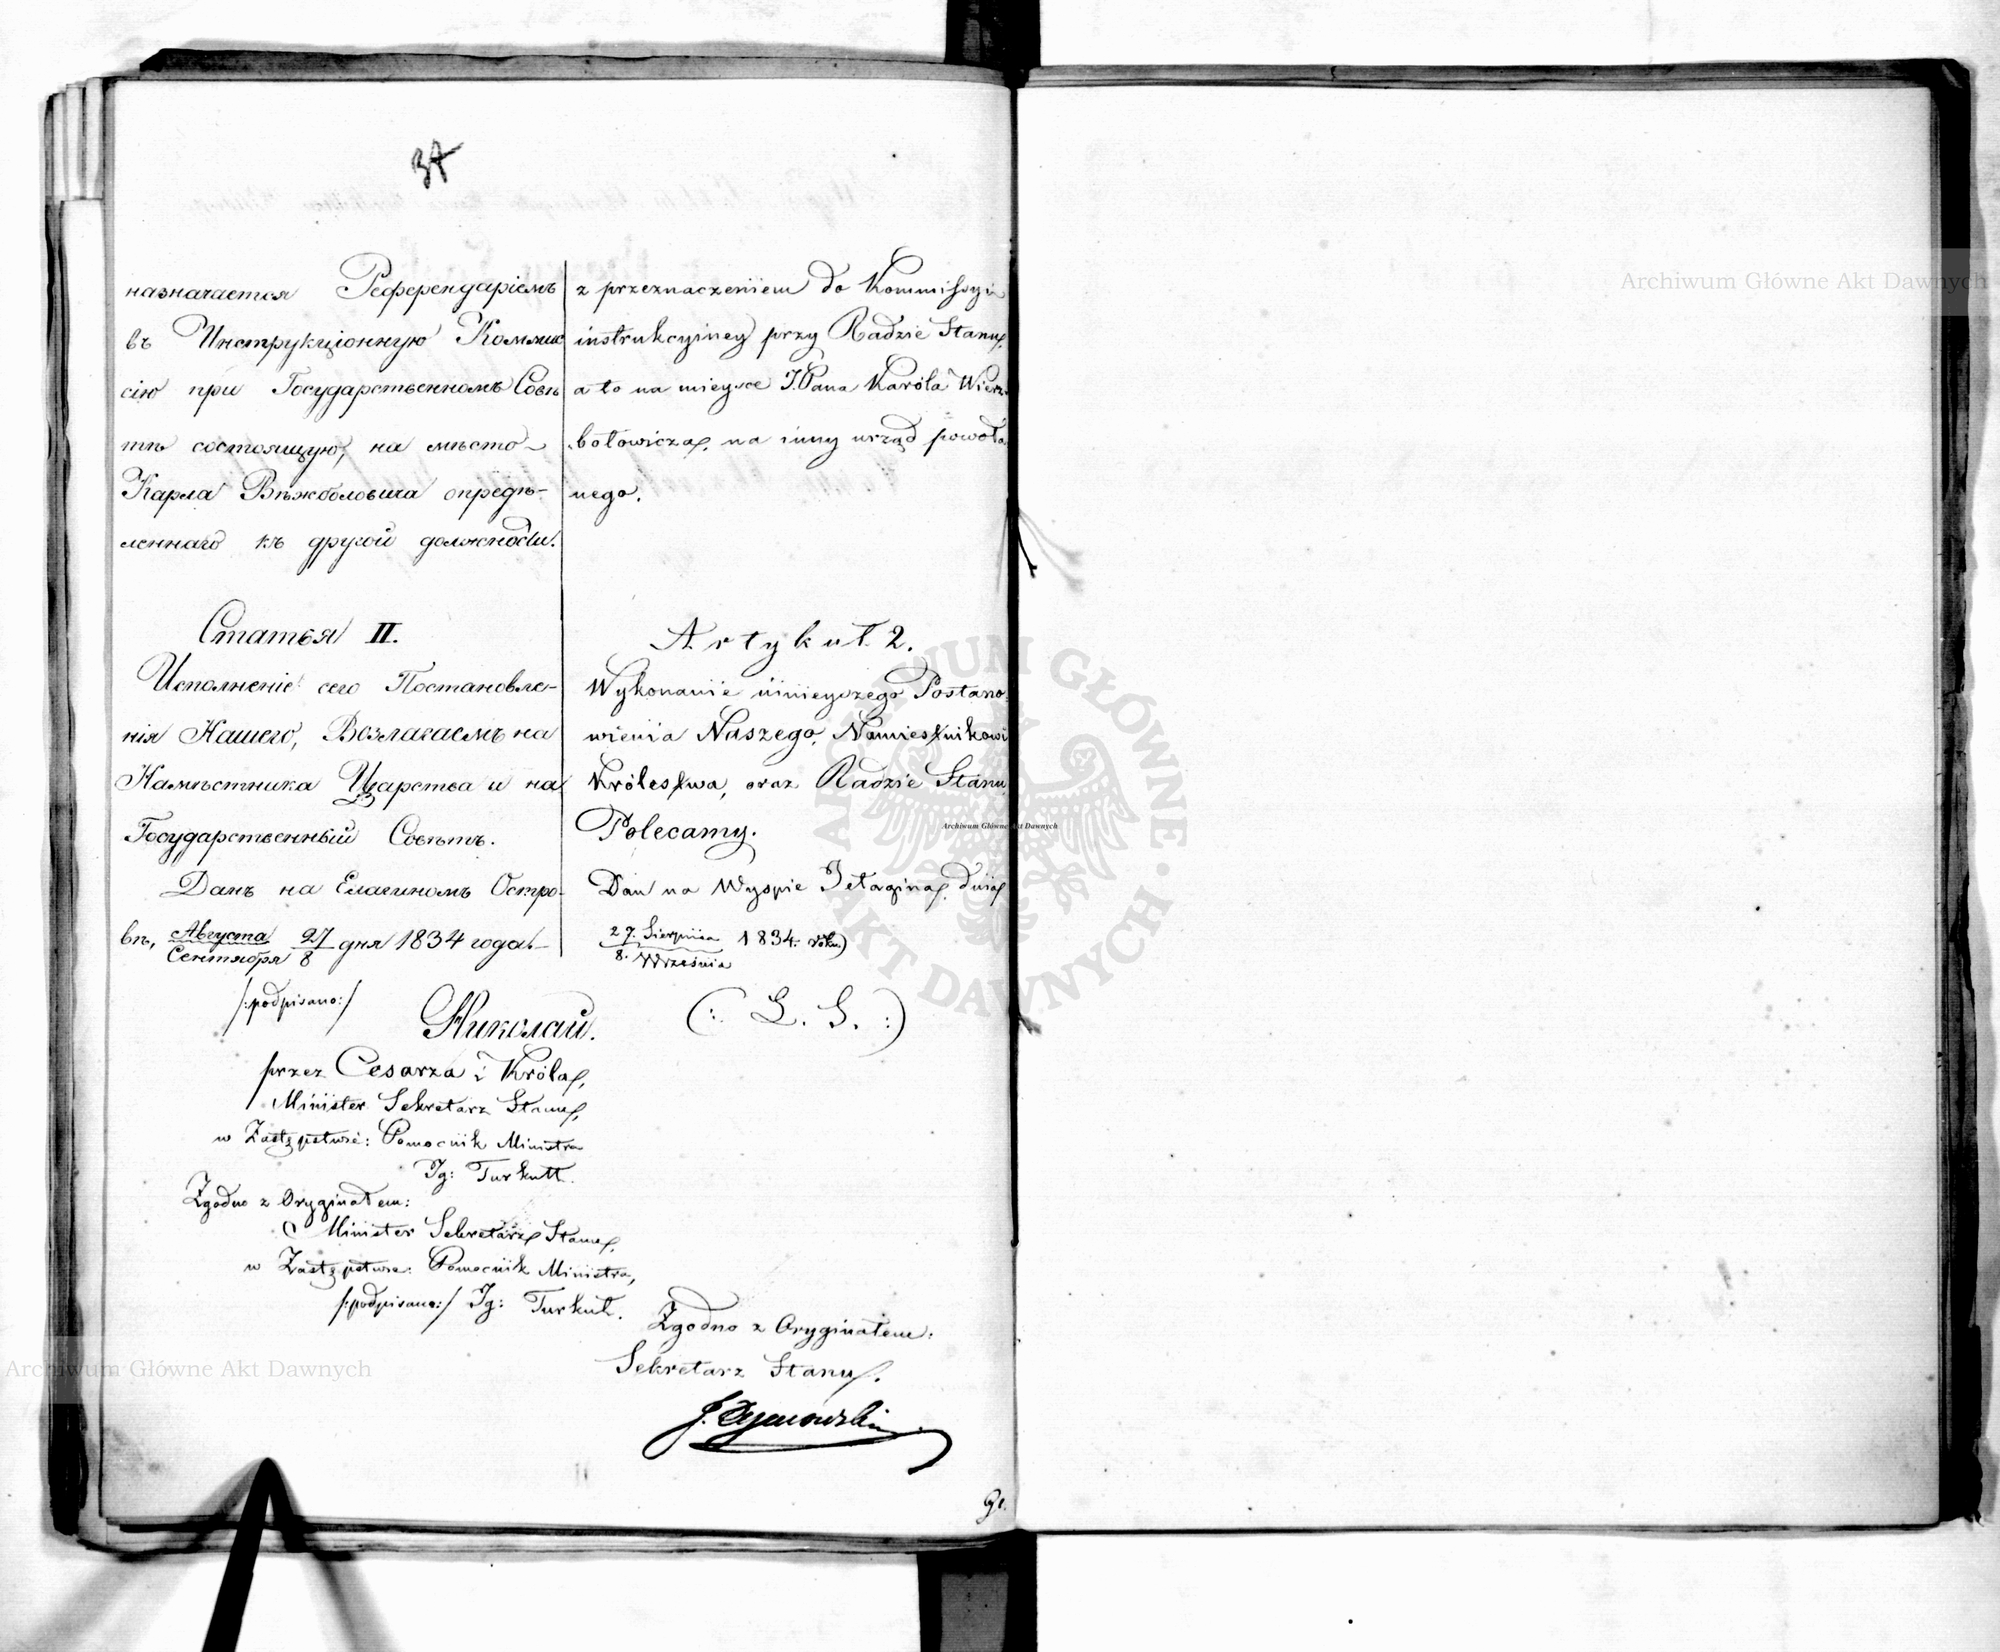 34
назначается Референдаріемъ
въ Инструкціонную Коммис
сію при Государственномъ Совѣ
тѣ состоящую, на мѣсто
Карла Вѣжболовича опредѣ-
леннаго къ другой должности.
Статья II.
Исполненіе сего Постановле-
нія Нашего, Возлагаемъ на
Намѣстника Царства и на
Государственный Совѣтъ.
Данъ на Елагиномъ Остро-
вѣ, Августа 27 дня 1834 года.
Сентября 8
z przeznaczeniem do Kommissyi
instrukcyiney przy Radzie Stanu,
a to na mieysce J. Pana Karola Wierz
bołowicza, na inny urząd powoła
nego.
Artykuł 2.
Wykonanie ninieyszego Postano
wienia Naszego, Namiestnikowi
Królestwa, oraz Radzie Stanu
Polecamy.
Dan na Wyspie Jełagina, dnia
27. Sierpnia 1834. roku)
8. Września
/:podpisano:/ Николай.
(: L. S. :)
przez Cesarza i Króla,
Minister Sekretarz Stanu,
w Zastępstwie: Pomocnik Ministra
Ig: Turkułł.
Zgodno z Oryginałem:
Minister Sekretarz Stanu,
w Zastępstwie: Pomocnik Ministra,
/:podpisano:/ Ig: Turkuł.
Zgodno z Oryginałem:
Sekretarz Stanu.
J. Tymowski
Archiwum Główne Akt Dawnych
Archiwum Główne Akt Dawnych
Archiwum Główne Akt Dawnych
ARCHIWUM GŁÓWNE · AKT DAWNYCH ·